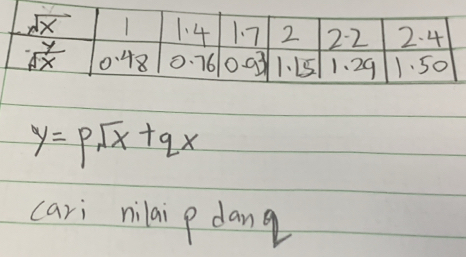 √x 1 1.4 1.7 2 2.2 2.4
y/√x 0.48 0.76 0.93 1.15 1.29 1.50
y = p√x + qx
cari nilai p dan q